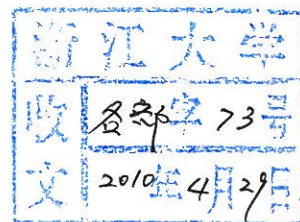 浙江大学
收文
各部字 73号
2010年4月29日